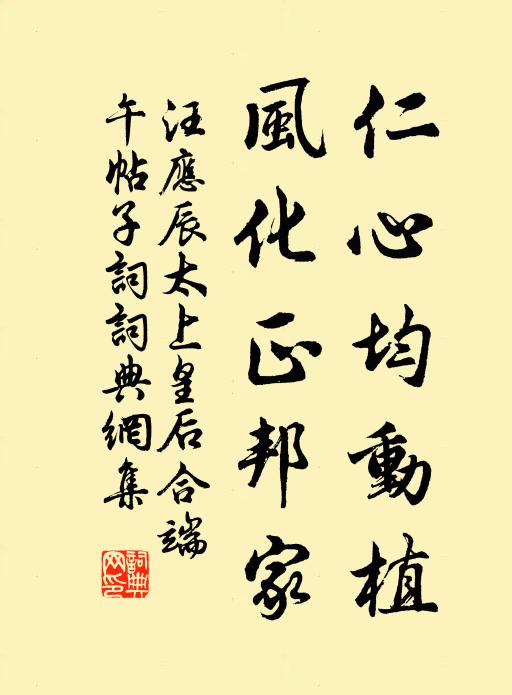 仁心均動植
風化正邦家
汪應辰太上皇后合端
午帖子詞詞典網集
詞典
网印